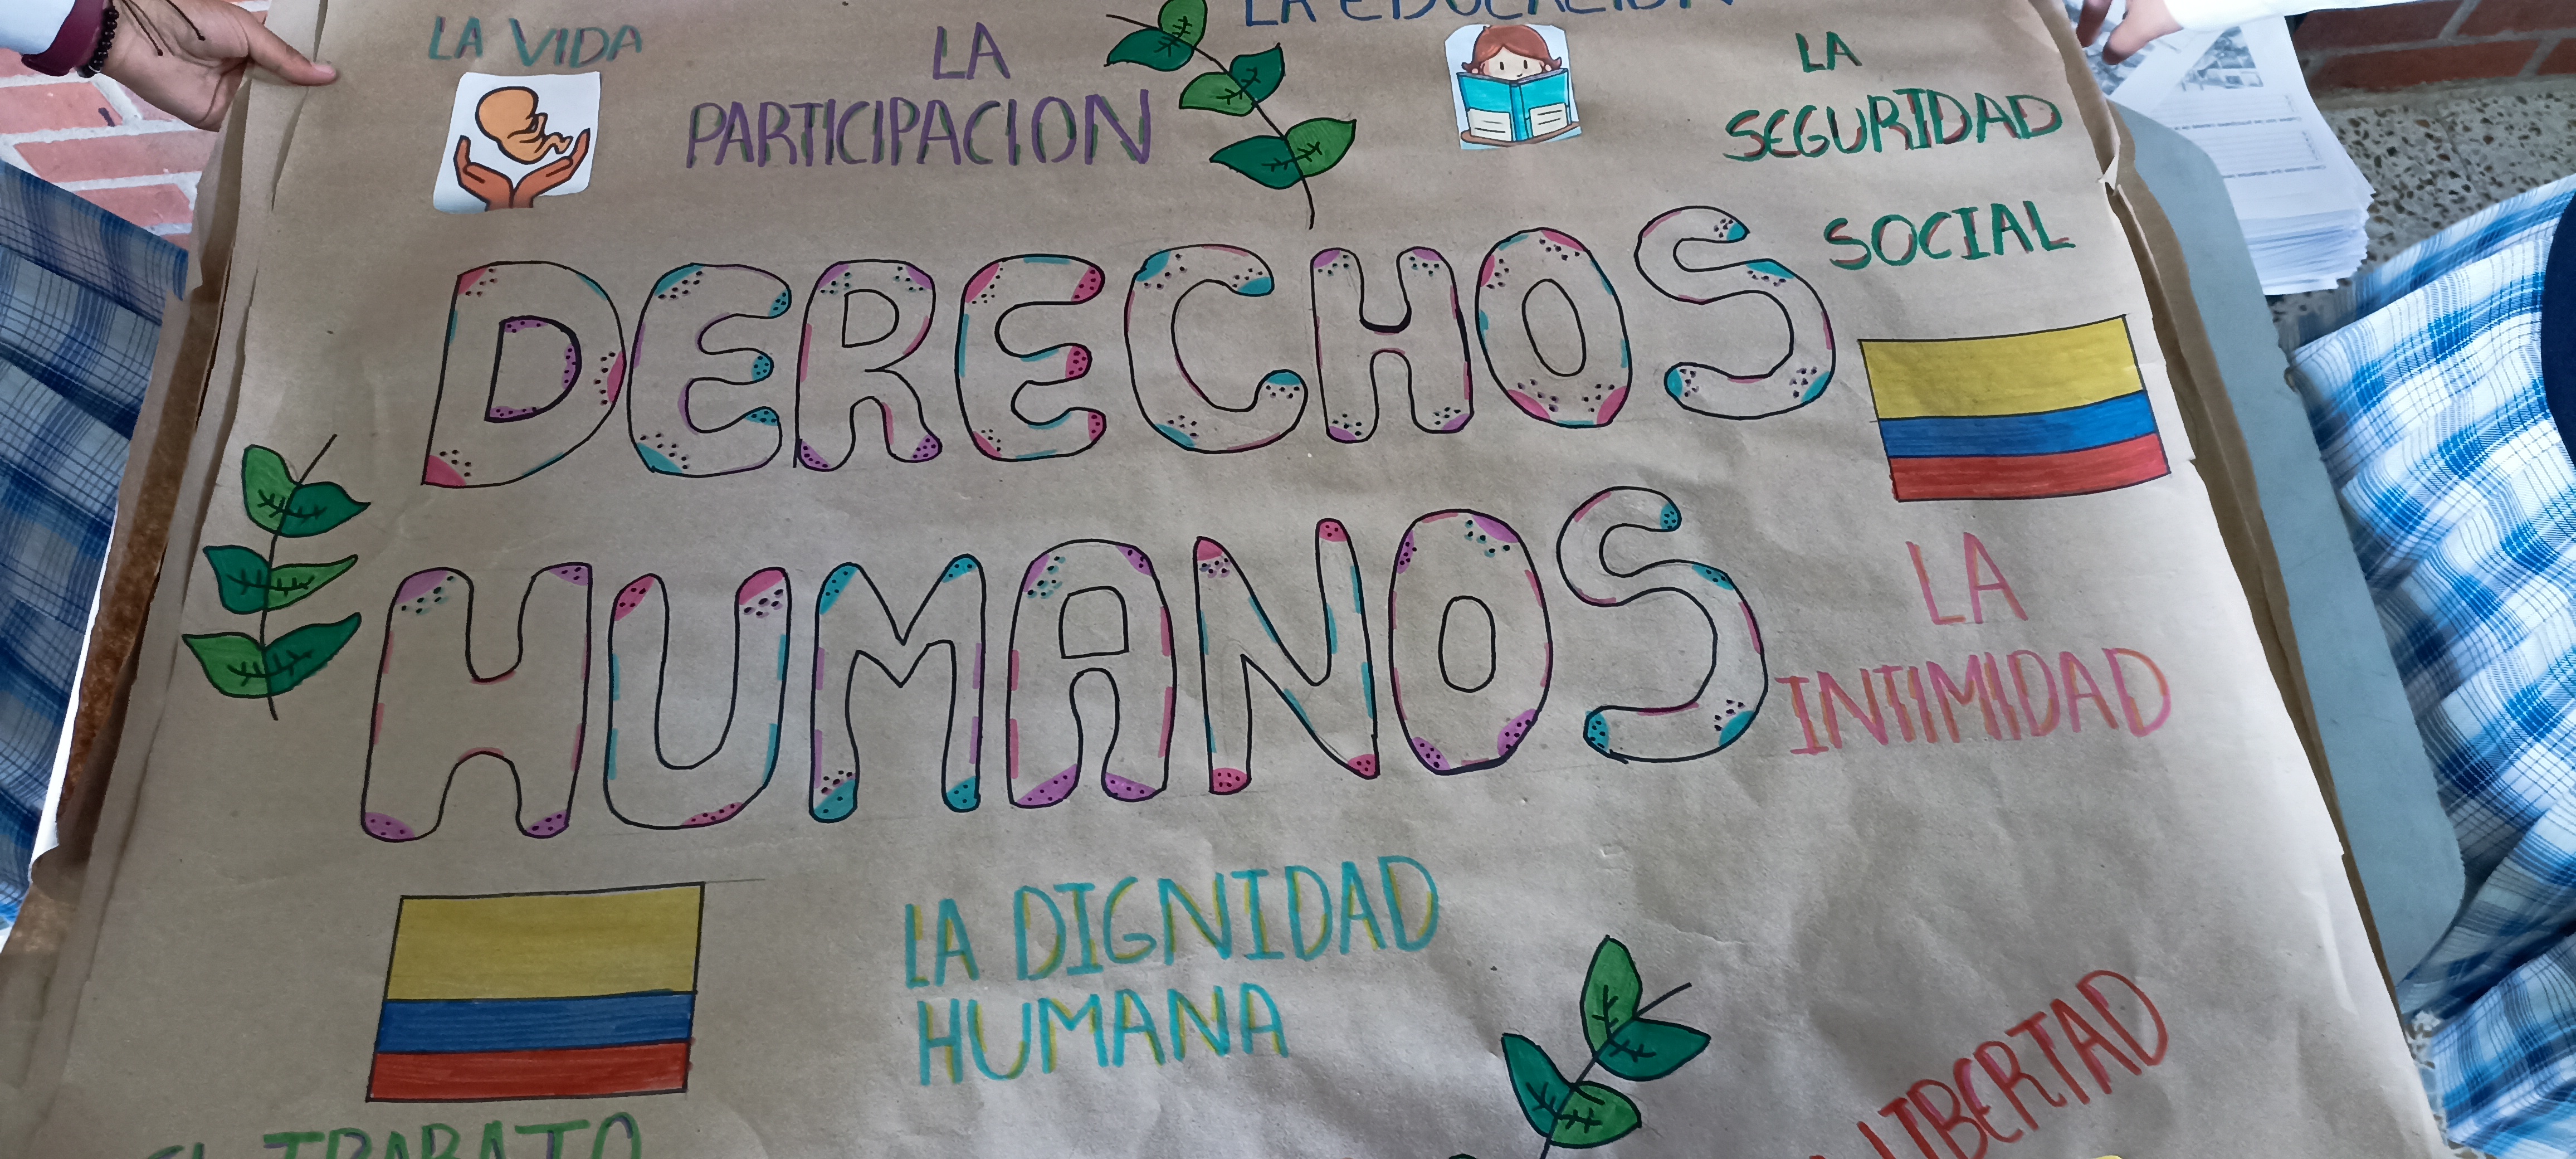 LA EDUCACION
LA VIDA
LA
PARTICIPACION
LA
SEGURIDAD
SOCIAL
DERECHOS
HUMANOS
LA
INTIMIDAD
LA DIGNIDAD
HUMANA
LIBERTAD
EL TRABAJO